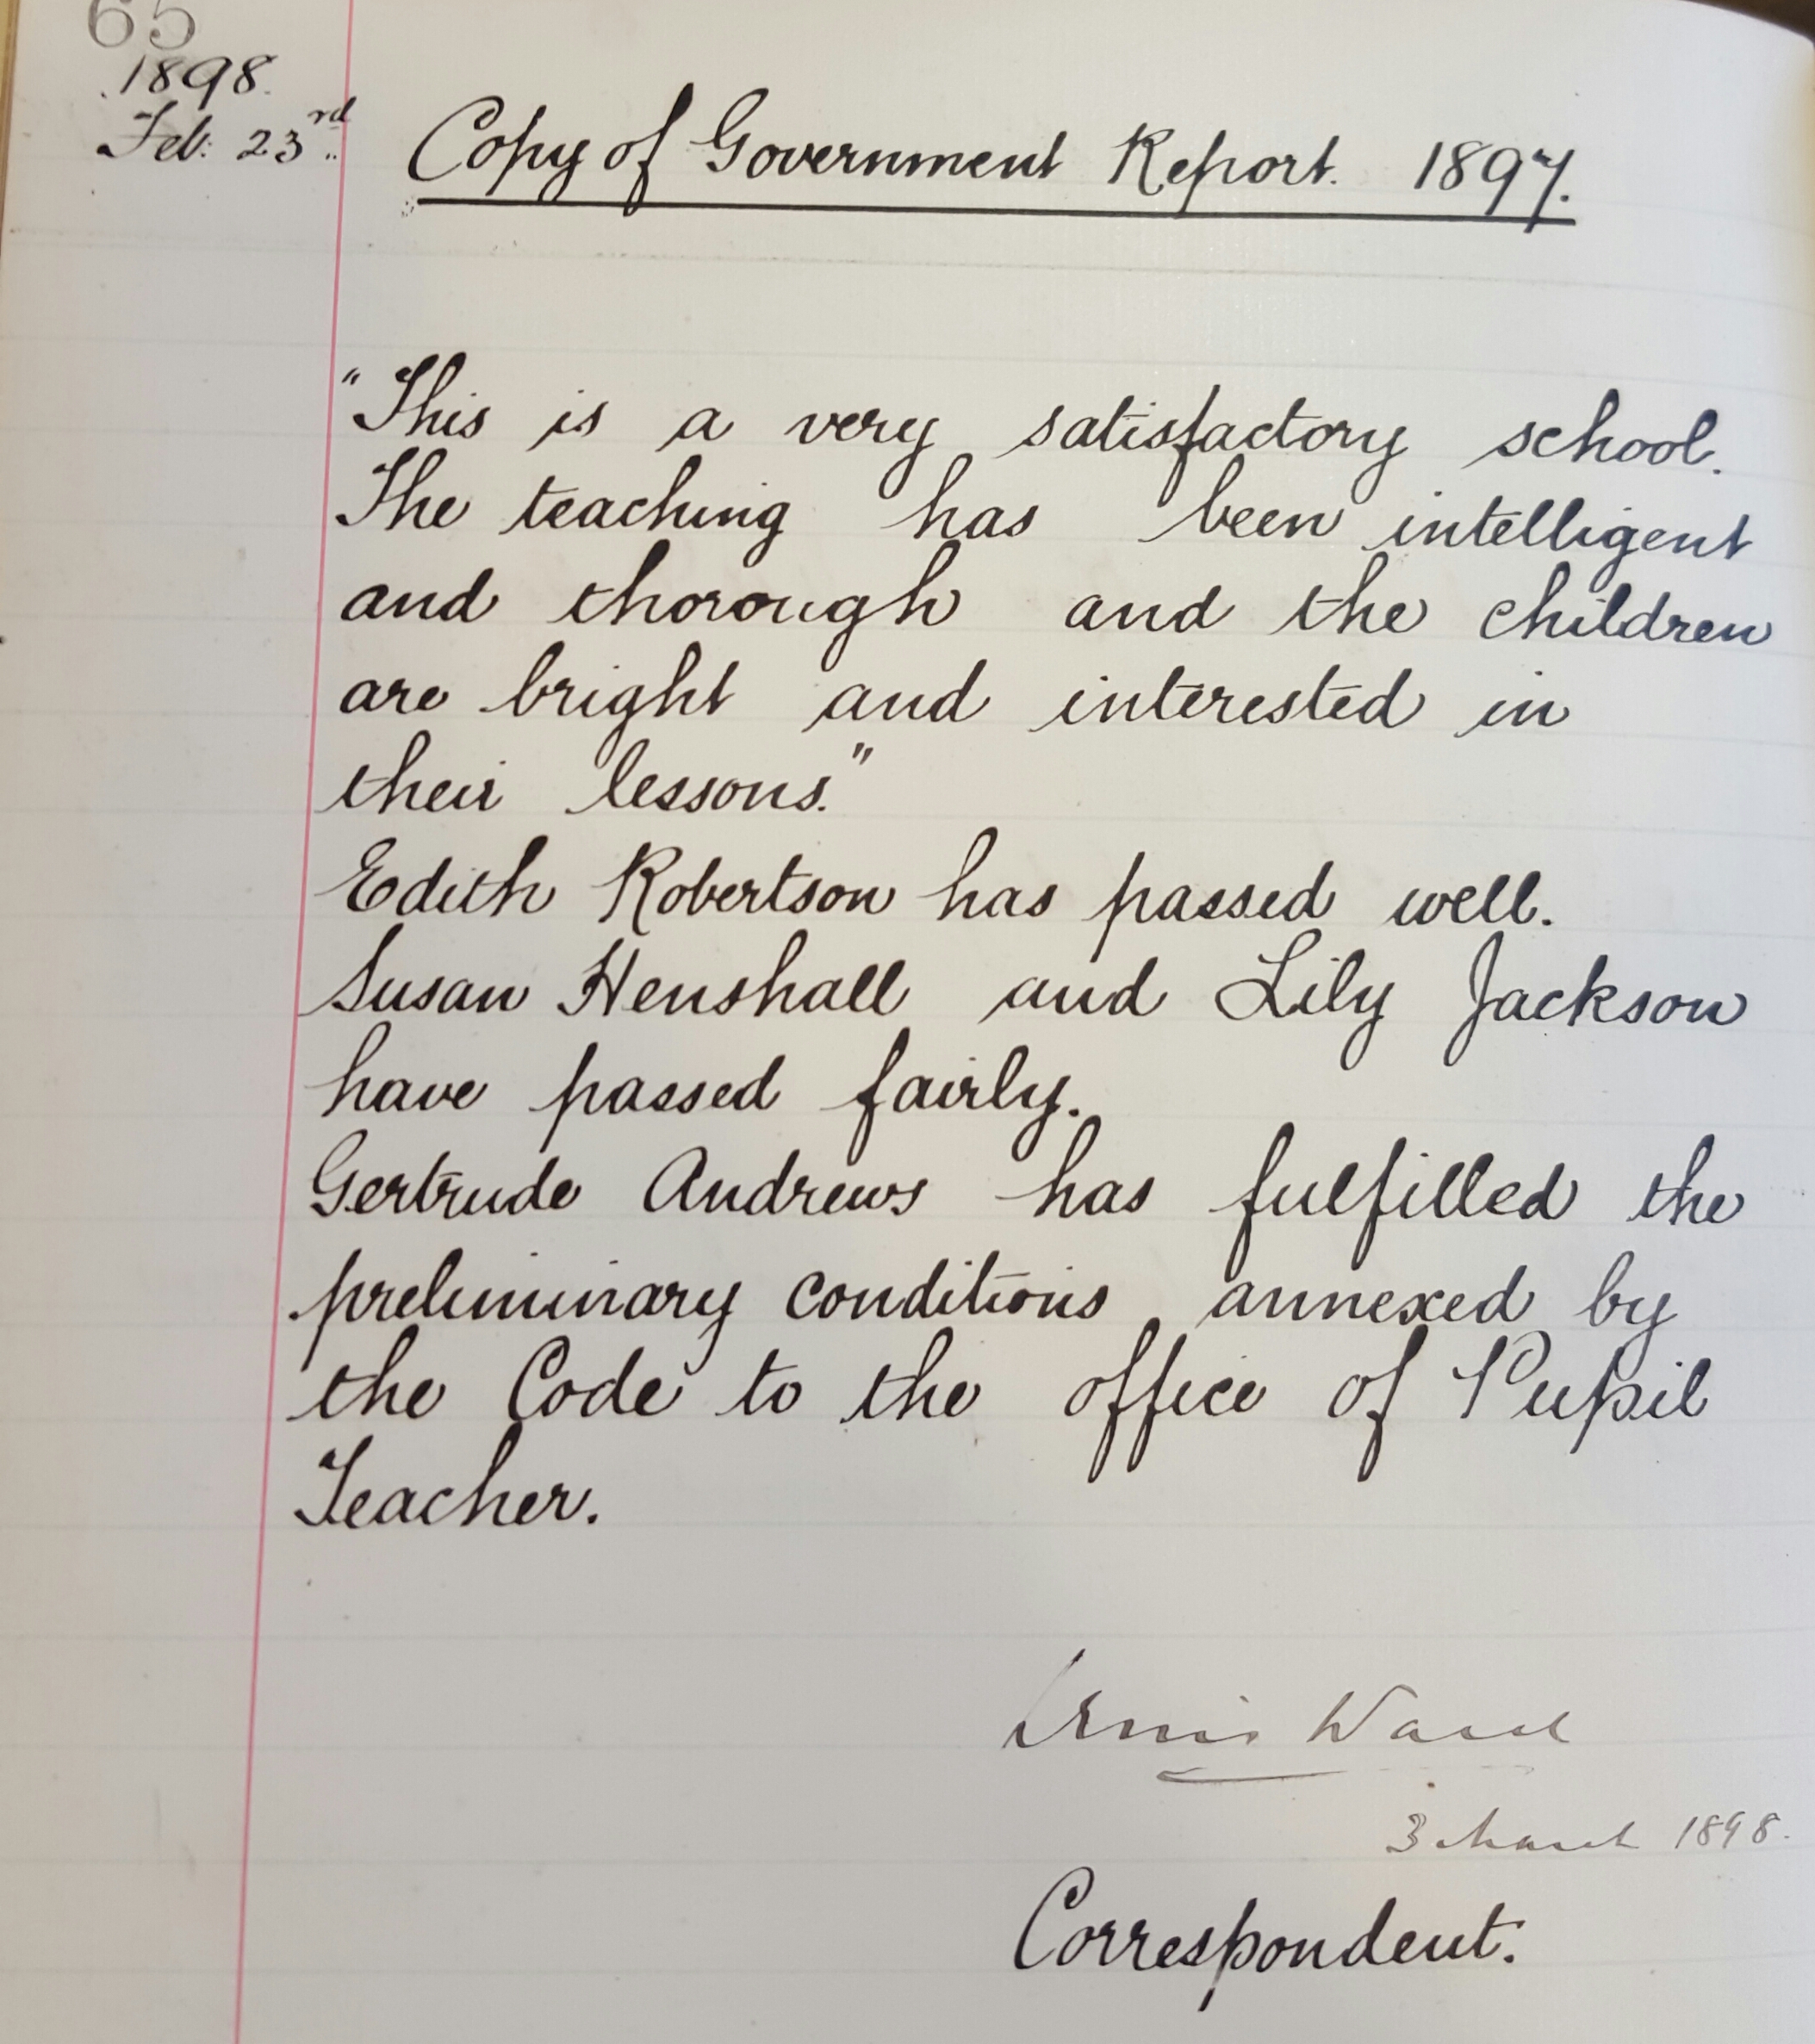 65
1898.
Feb: 23rd
Copy of Government Report. 1897.
"This is a very satisfactory school.
The teaching has been intelligent
and thorough and the children
are bright and interested in
their lessons."
Edith Robertson has passed well.
Susan Henshall and Lily Jackson
have passed fairly.
Gertrude Andrews has fulfilled the
preliminary conditions annexed by
the Code to the office of Pupil
Teacher.
Ward
3 March 1898.
Correspondent.